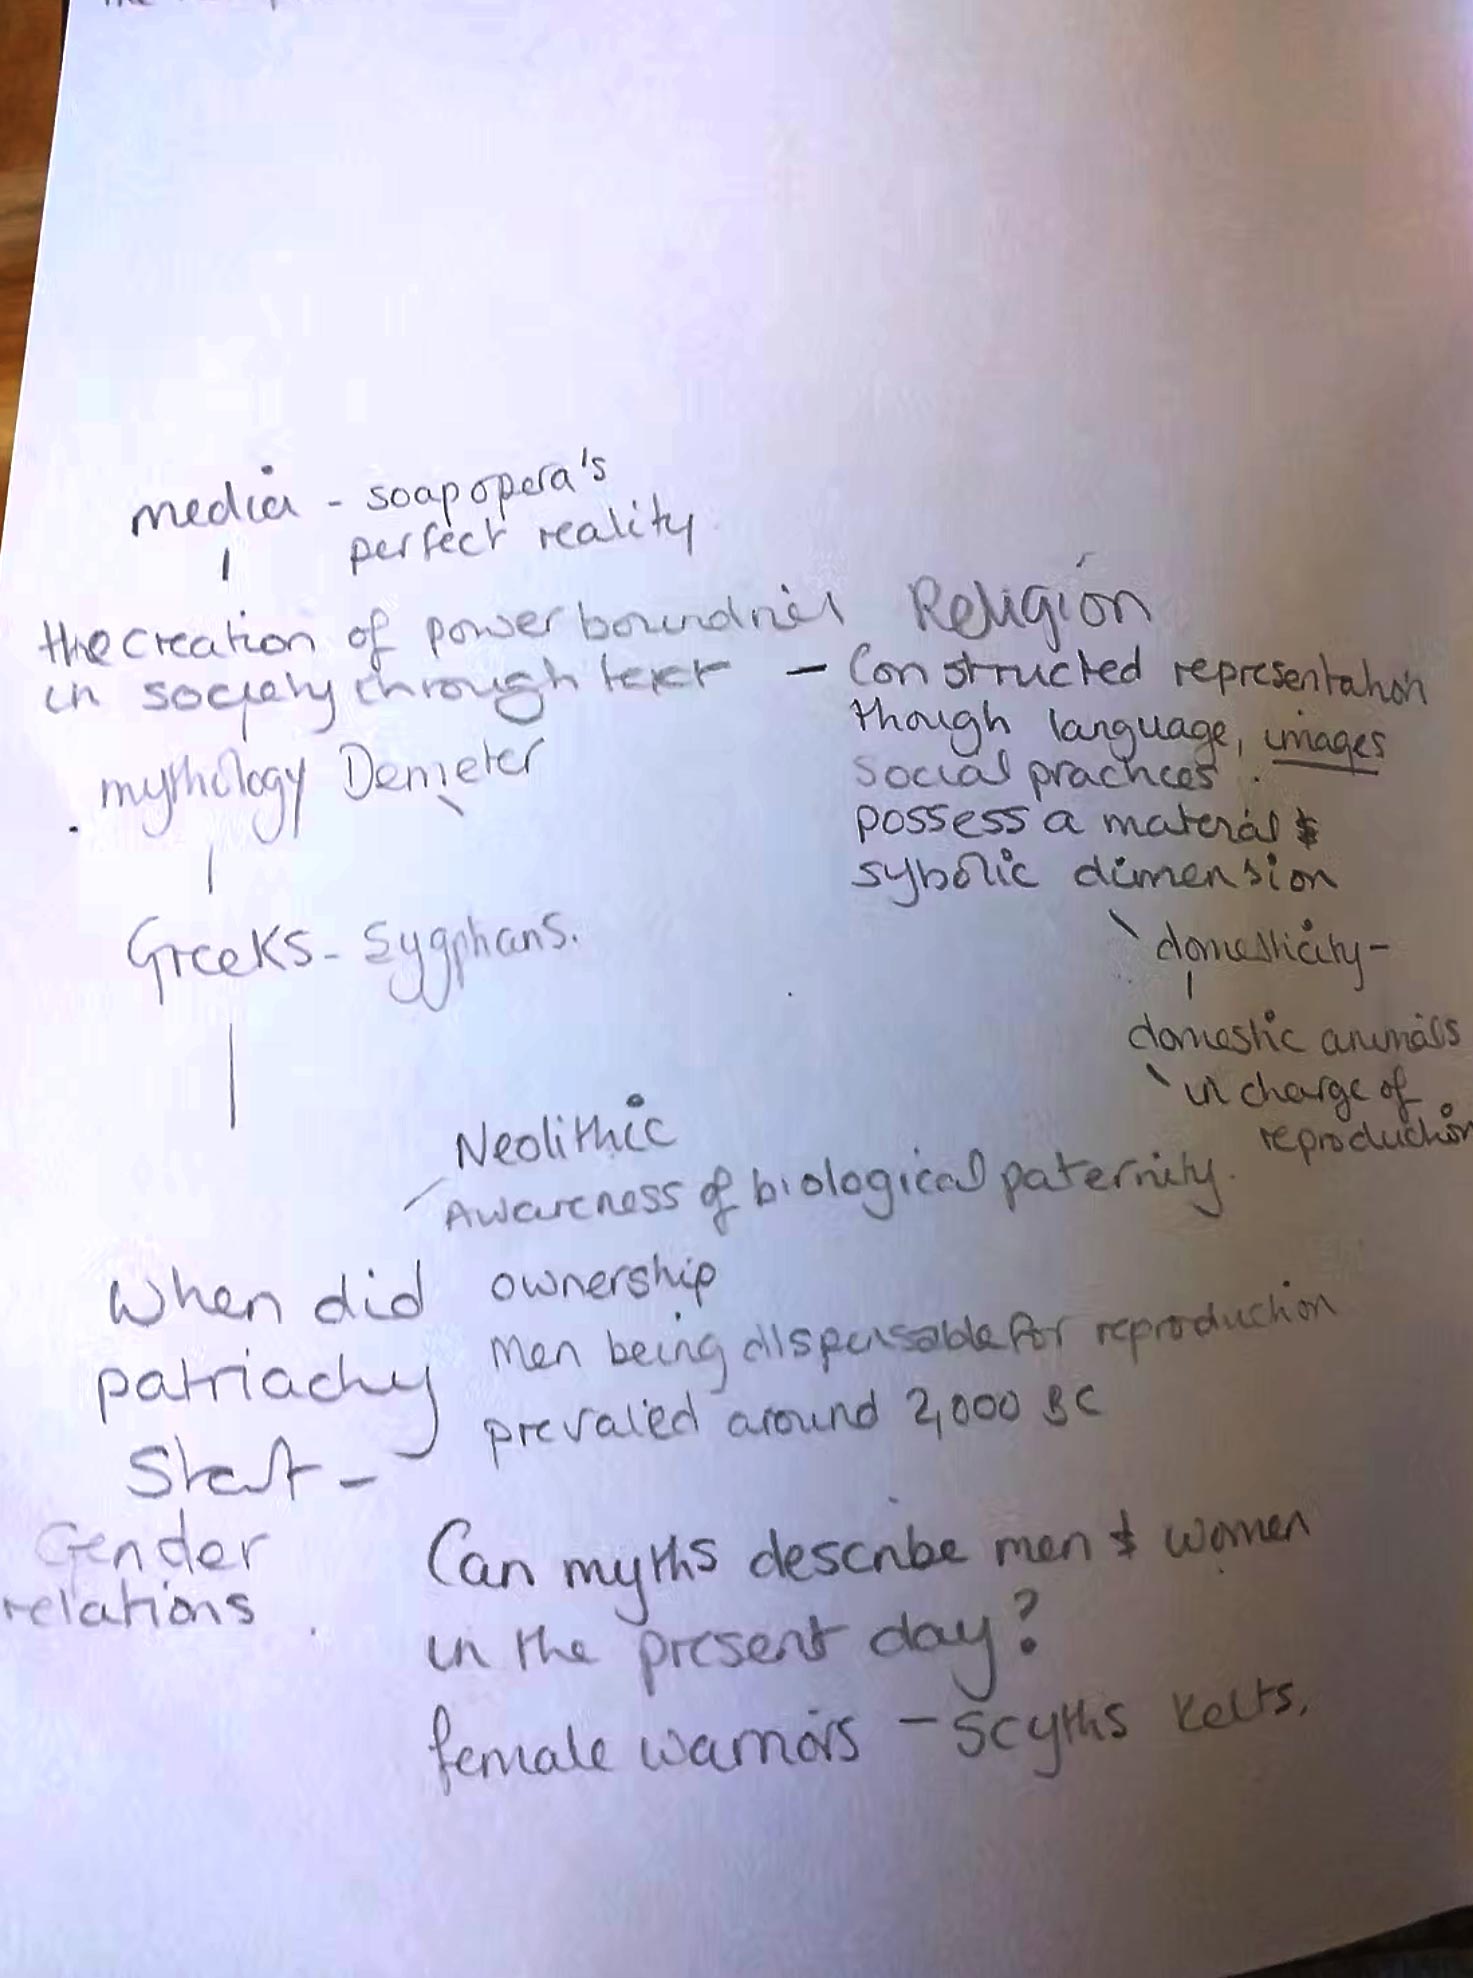 media - soap opera's
perfect reality
the creation of power boundries
in society through text
Religion
- Constructed representation
though language, images
social practices.
possess a material &
sybolic dimension
domesticity -
domestic animals
in charge of
reproduction
mythology Demeter
Greeks - Eygphans.
Neolithic
Awareness of biological paternity.
ownership
Men being dispensable for reproduction
prevailed around 2,000 BC
When did
patriachy
Start -
Gender
relations
Can myths describe men & women
in the present day?
female warriors - Scyths Kelts.